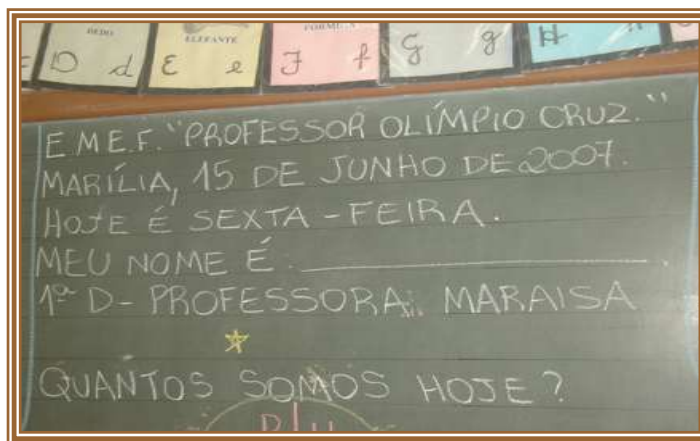 DEDO ELEFANTE FORMIGA
D d E e F f G g H h
E.M.E.F. "PROFESSOR OLÍMPIO CRUZ."
MARÍLIA, 15 DE JUNHO DE 2007.
HOJE É SEXTA-FEIRA.
MEU NOME É ____________________.
1ª D- PROFESSORA: MARAISA
QUANTOS SOMOS HOJE?